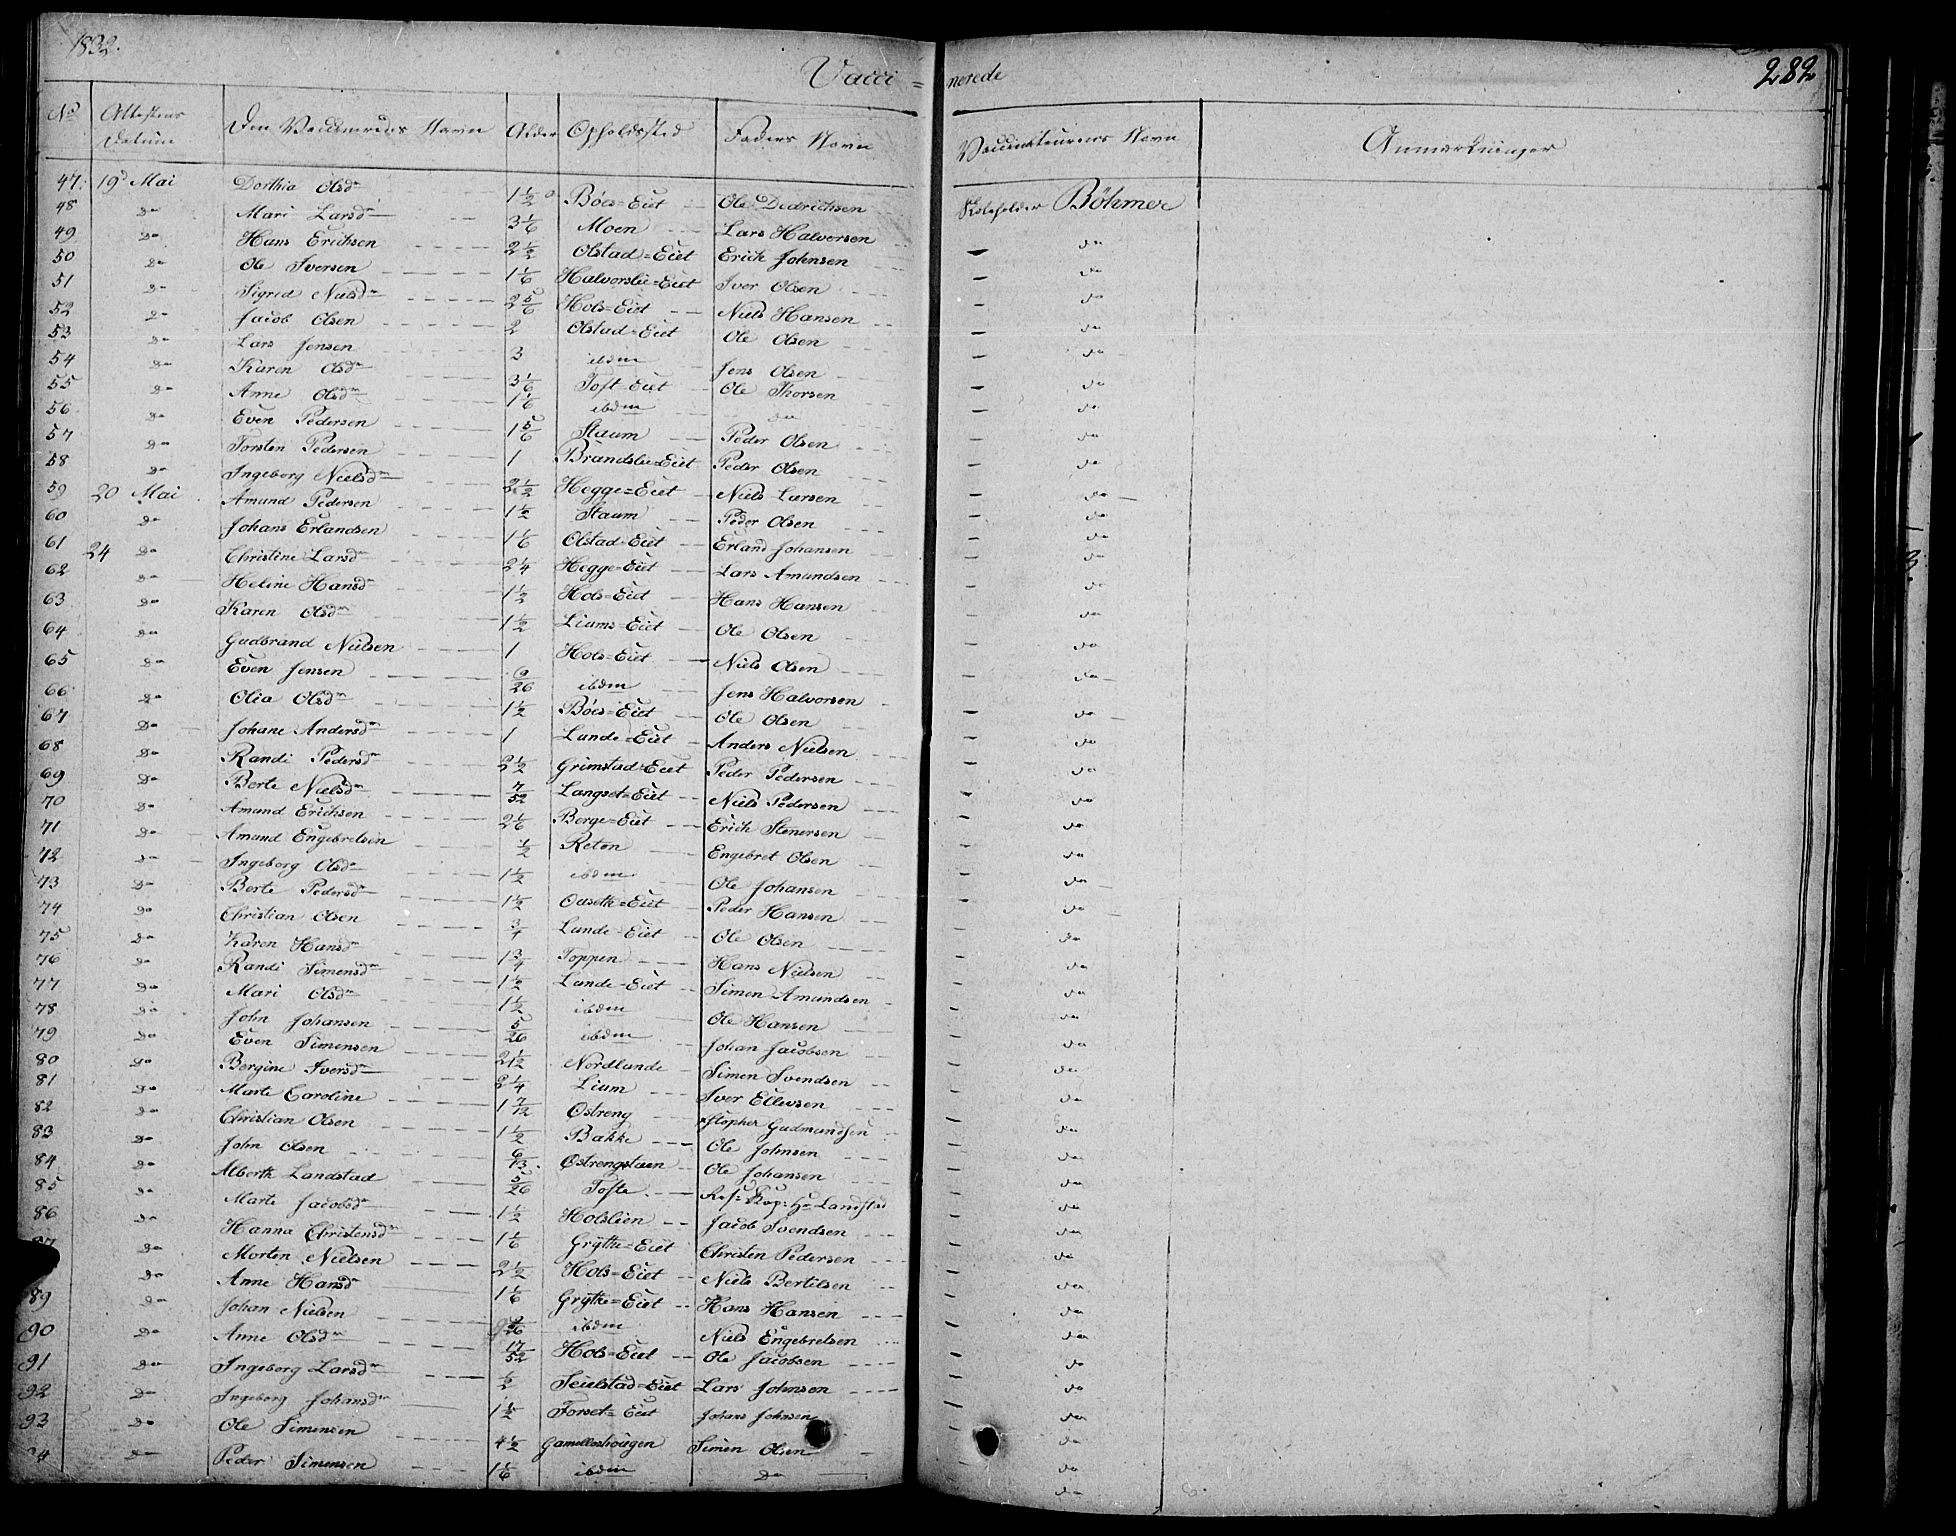 1832.
Vacci=nerede 282
No Attestens Datum Den Vaccineredes Navn Alder Opholdssted Faders Navn Vaccinateurens Navn Anmærkninger
47. 19d Mai Dorthia Olsdr 1 1/2 Böes=Eiet Ole Dedrichsen Böhmer
48 do Mari Larsdr 3 1/6 Moen Lars Halvorsen - do
49 do Hans Erichsen 2 1/2 Olstad=Eiet Erich Johnsen - do
50 do Ole Iversen 1 1/6 Halvorslie=Eiet Iver Olsen - do
51 do Sigrid Nielsdr 2 5/6 Hols=Eiet Niels Hansen - do
52 do Jacob Olsen 2 Olstad=Eiet Ole Olsen - do
53 do Lars Jensen 3 ibdm Jens Olsen - do
54 do Karen Olsdr 3 1/6 Toft=Eiet Ole Thorsen - do
55 do Anne Olsdr 1 1/6 ibdm do - do
56 do Even Pedersen 1 5/6 Staum Peder Olsen - do
57 do Torsten Pedersen 1 Brandslie=Eiet Peder Olsen - do
58 do Ingeborg Nielsdr 2 1/2 Hegge=Eiet Niels Larsen - do
59 20 Mai Amund Pedersen 1 1/2 Staum Peder Olsen - do
60 do Johans Erlandsen 1 1/6 Olstad=Eiet Erland Johansen - do
61 24 do Christine Larsdr 2 1/4 Hegge=Eiet Lars Amundsen - do
62 do Heline Hansdr 1 1/2 Hols=Eiet Hans Hansen - do
63 do Karen Olsdr 1 1/2 Liums=Eiet Ole Olsen - do
64 do Gudbrand Nielsen 1 Hols=Eiet Niels Olsen - do
65 do Even Jensen 9/26 ibdm Jens Halvorsen - do
66 do Olia Olsdr 1 1/2 Böes=Eiet Ole Olsen - do
67 do Johane Andersdr 1 Lunde=Eiet Anders Nielsen - do
68 do Randi Pedersdr 2 1/2 Grimstad=Eiet Peder Pedersen - do
69 do Berte Nielsdr 7/52 Langset=Eiet Niels Pedersen - do
70 do Amund Erichsen 2 1/6 Berge=Eiet Erich Stenersen - do
71 do Amund Engebretsen 1/2 Reton Engebret Olsen - do
72 do Ingeborg Olsdr 1 1/2 ibdm Ole Johansen - do
73 do Berte Pedersdr 1 1/2 =Eiet Peder Hansen - do
74 do Christian Olsen 3/4 Lunde=Eiet Ole Olsen - do
75 do Karen Hansdr 1 3/4 Toppen Hans Nielsen - do
76 do Randi Simensdr 1 1/2 Lunde=Eiet Simen Amundsen - do
77 do Mari Olsdr 1 1/2 ibdm Ole Hansen - do
78 do John Johansen 5/26 ibdm Johan Jacobsen - do
79 do Even Simensen 2 1/2 Nordlunde Simen Svendsen - do
80 do Bergine Iversdr 2 1/4 Lium Iver Ellevsen - do
81 do Marte Caroline 1 7/12 Östreng Gudmundsen - do
82 do Christian Olsen 1 1/2 Bakke Ole Johnsen - do
83 do John Olsen 6/13 Östrengstuen Ole Johansen - do
84 do Alberth Landstad 5/26 Tofte Res: Kap: Hr Landstad - do
85 do Marte Jacobsdr 1 1/2 Holslien Jacob Svendsen - do
86 do Hanna Christensdr 1 1/6 Grÿthe=Eiet Christen Pedersen - do
do Morten Nielsen 2 1/2 Hols=Eiet Niels Bertilsen - do
do Anne Hansdr 1 1/6 Grÿthe=Eiet Hans Hansen - do
89 do Johan Nielsen ibdm Niels Engebretsen - do
90 do Anne Olsdr 17/52 Hols=Eiet Ole Jacobsen - do
91 do Ingeborg Larsdr 1/2 Seielstad=Eiet Lars Johnsen - do
92 do Ingeborg Johansdr 1 1/2 Forset=Eiet Johans Johnsen - do
93 do Ole Simensen 4 1/2 Gamelleshougen Simen Olsen - do
94 do Peder Simensen 1 1/6 ibdm do - do